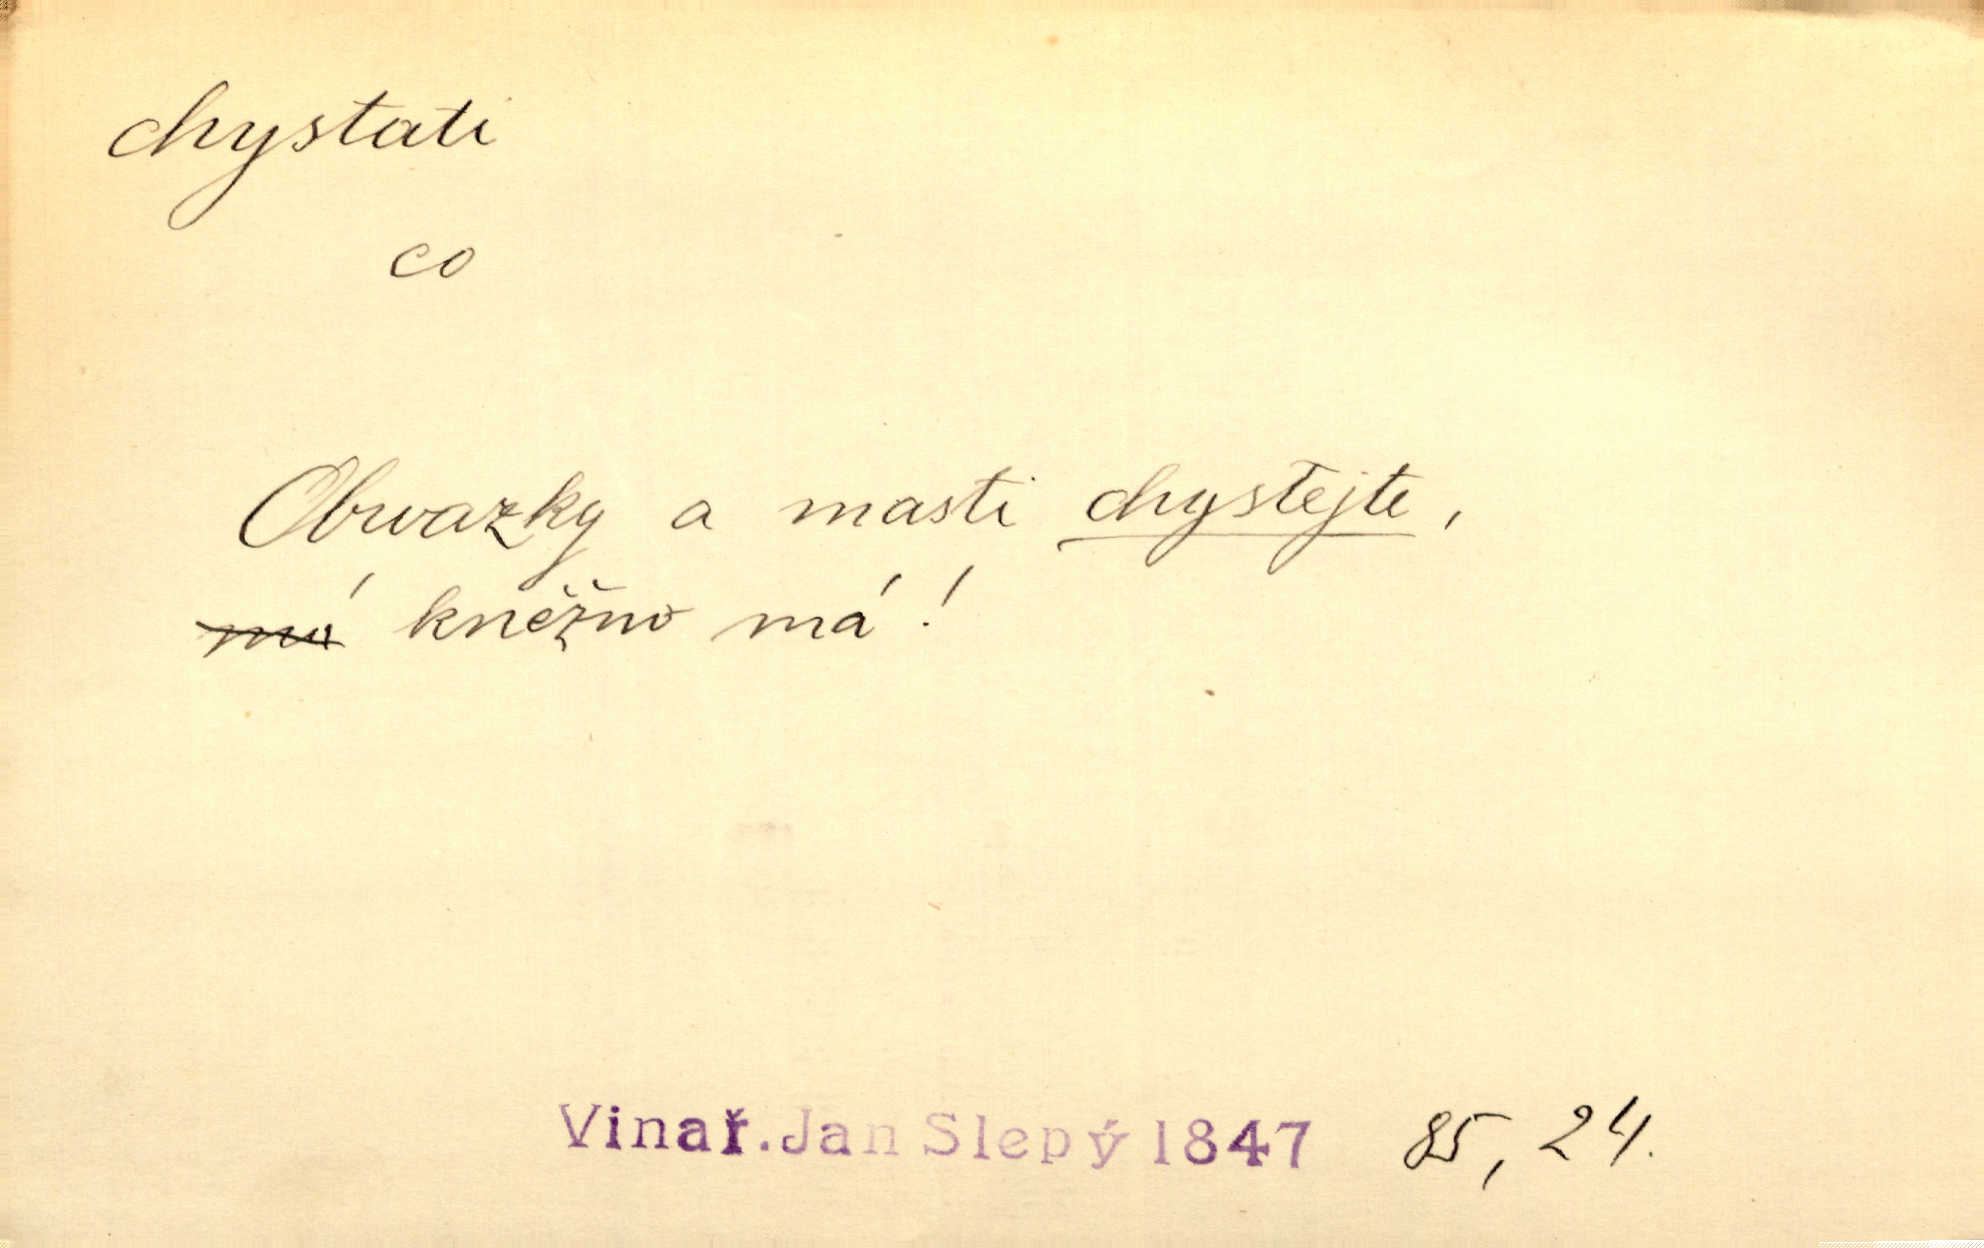 chystati
co
Obvazky a masti chystejte,
má kněžno má!
Vinař. Jan Slepý 1847 85, 24.